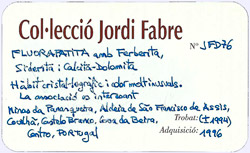 Col·lecció Jordi Fabre
FLUORAPATITA amb Ferberita, Nº JFD76
Siderita i Calcita-Dolomita
Hàbit cristal·logràfic i color molt inusuals.
La associació es interesant
Minas da Panasqueira, Aldeia de São Francisco de Assis,
Covilhã, Castelo Branco, Cova da Beira, Trobat: (±1994)
Centro, Portugal Adquisició: 1996